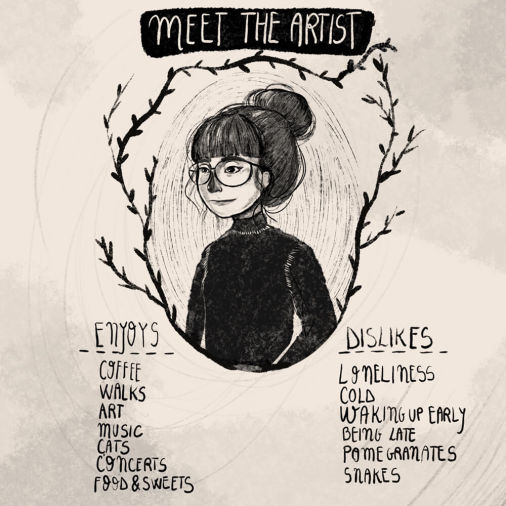 MEET THE ARTIST
ENJOYS
COFFEE
WALKS
ART
MUSIC
CATS
CONCERTS
FOOD & SWEETS
DISLIKES
LONELINESS
COLD
WAKING UP EARLY
BEING LATE
POMEGRANATES
SNAKES